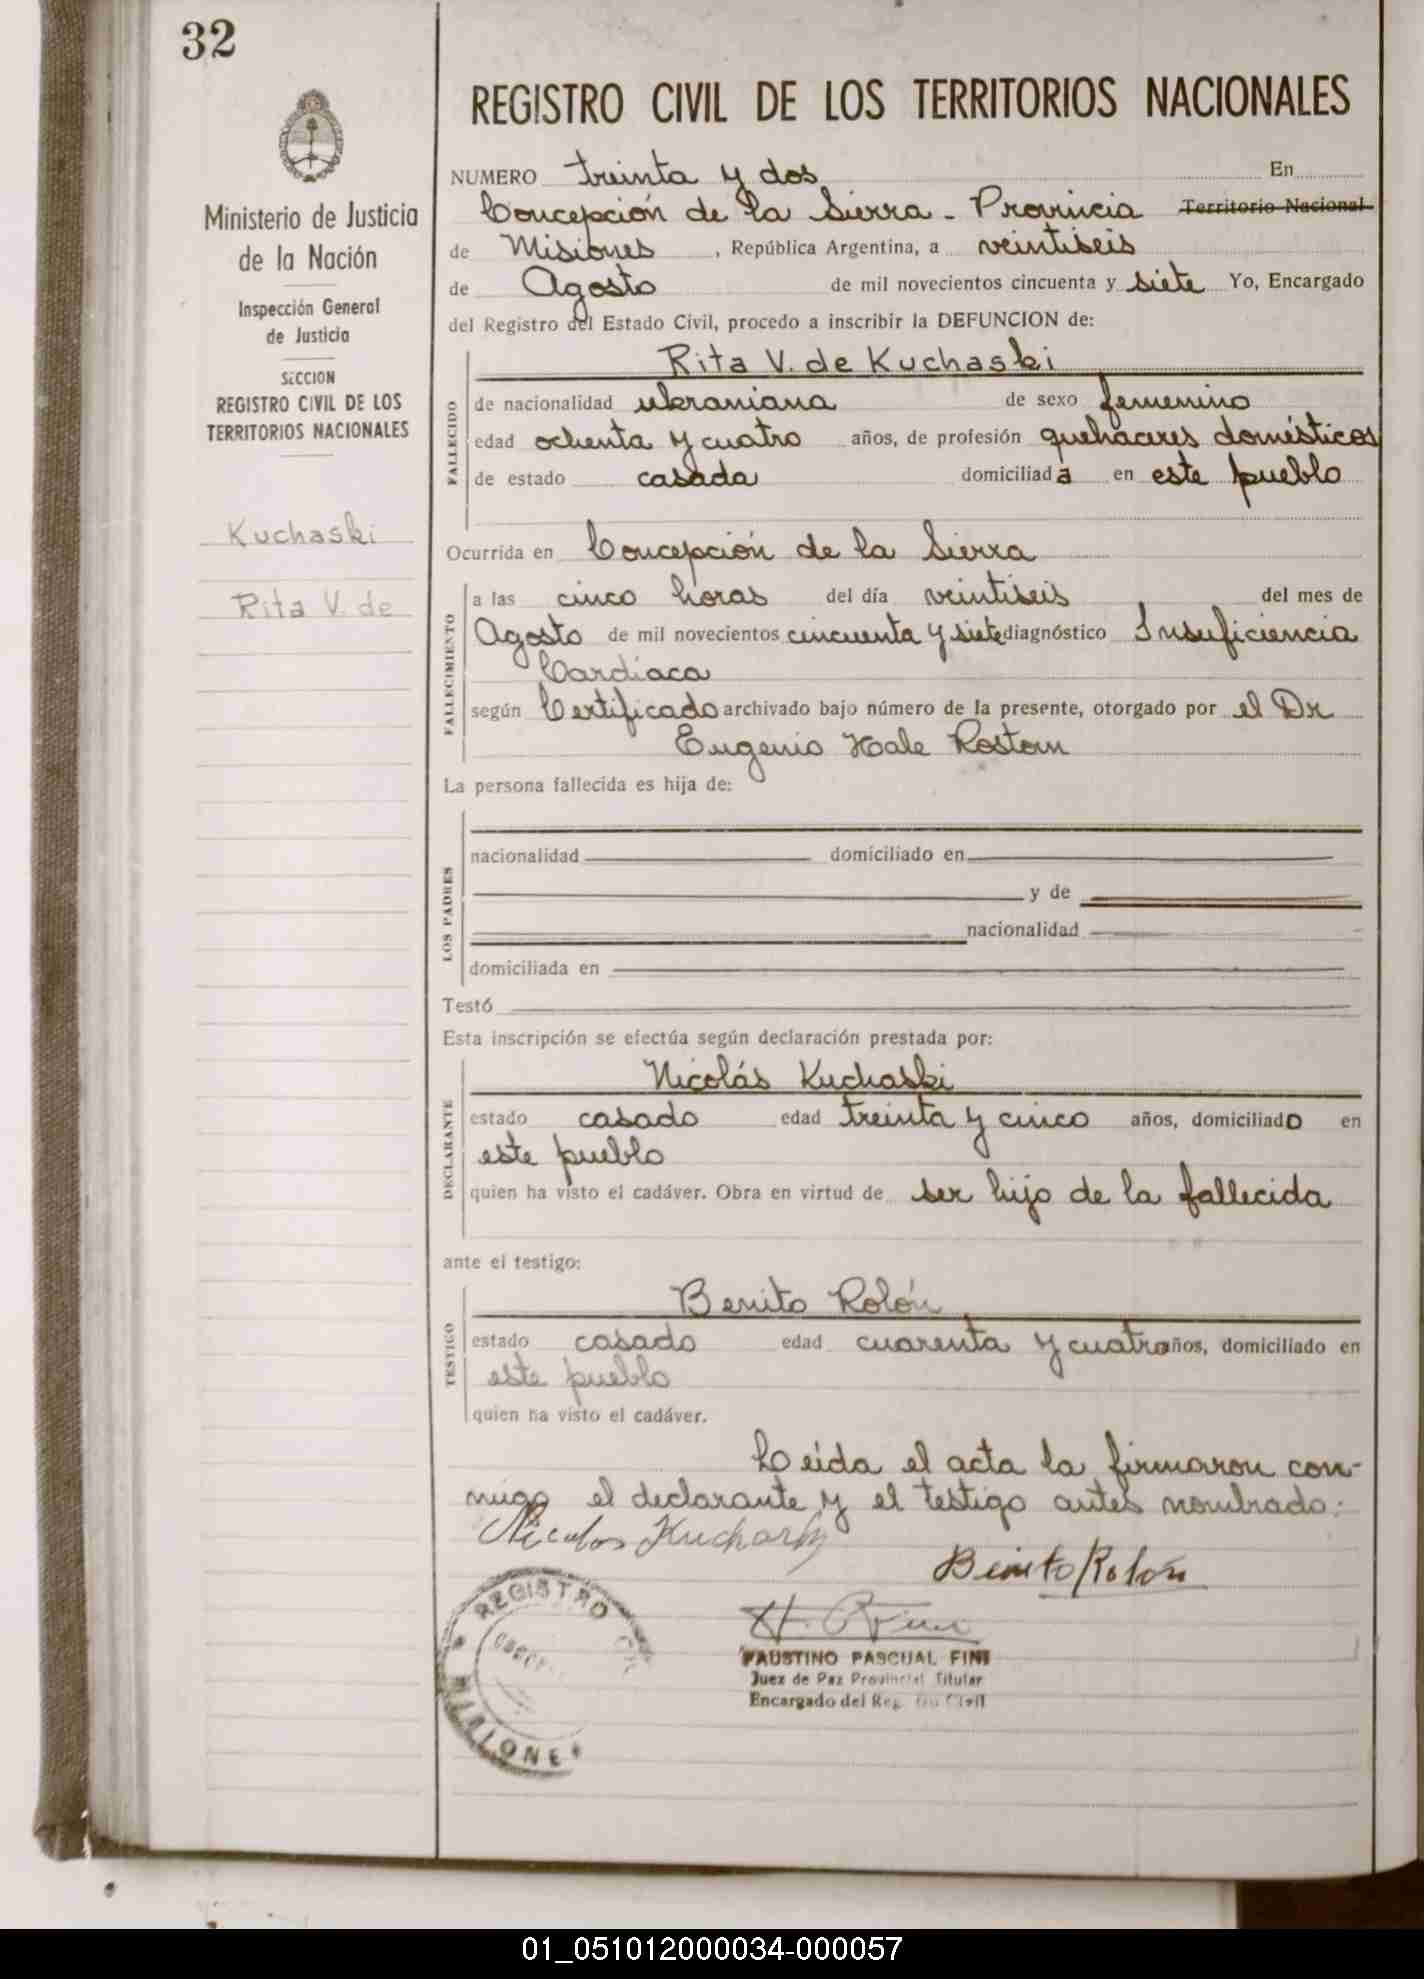 32
REGISTRO CIVIL DE LOS TERRITORIOS NACIONALES
Ministerio de Justicia
de la Nación
Inspección General
de Justicia
SECCION
REGISTRO CIVIL DE LOS
TERRITORIOS NACIONALES
Kuchaski
Rita V. de
NUMERO treinta y dos En
Concepción de la Sierra - Provincia Territorio Nacional
de Misiones, República Argentina, a veintiseis
de Agosto de mil novecientos cincuenta y siete Yo, Encargado
del Registro del Estado Civil, procedo a inscribir la DEFUNCION de:
Rita V. de Kuchaski
FALLECIDO
de nacionalidad ukraniana de sexo femenino
edad ochenta y cuatro años, de profesión quehaceres domésticos
de estado casada domiciliada en este pueblo
Ocurrida en Concepción de la Sierra
FALLECIMIENTO
a las cinco horas del día veintiseis del mes de
Agosto de mil novecientos cincuenta y siete diagnóstico Insuficiencia
Cardíaca
según Certificado archivado bajo número de la presente, otorgado por el Dr
Eugenio Hale Rostom
La persona fallecida es hija de:
LOS PADRES
nacionalidad domiciliado en
y de
nacionalidad
domiciliada en
Testó
Esta inscripción se efectúa según declaración prestada por:
Nicolás Kuchaski
DECLARANTE
estado casado edad treinta y cinco años, domiciliado en
este pueblo
quien ha visto el cadáver. Obra en virtud de ser hijo de la fallecida
ante el testigo:
Benito Rolón
TESTIGO
estado casado edad cuarenta y cuatro años, domiciliado en
este pueblo
quien ha visto el cadáver.
Leída el acta la firmaron con-
migo el declarante y el testigo antes nombrado:
Nicolas Kucharky
Benito Rolón
REGISTRO
MISIONES
FAUSTINO PASCUAL FINI
Juez de Paz Provincial Titular
Encargado del Reg. Civil
01_051012000034-000057